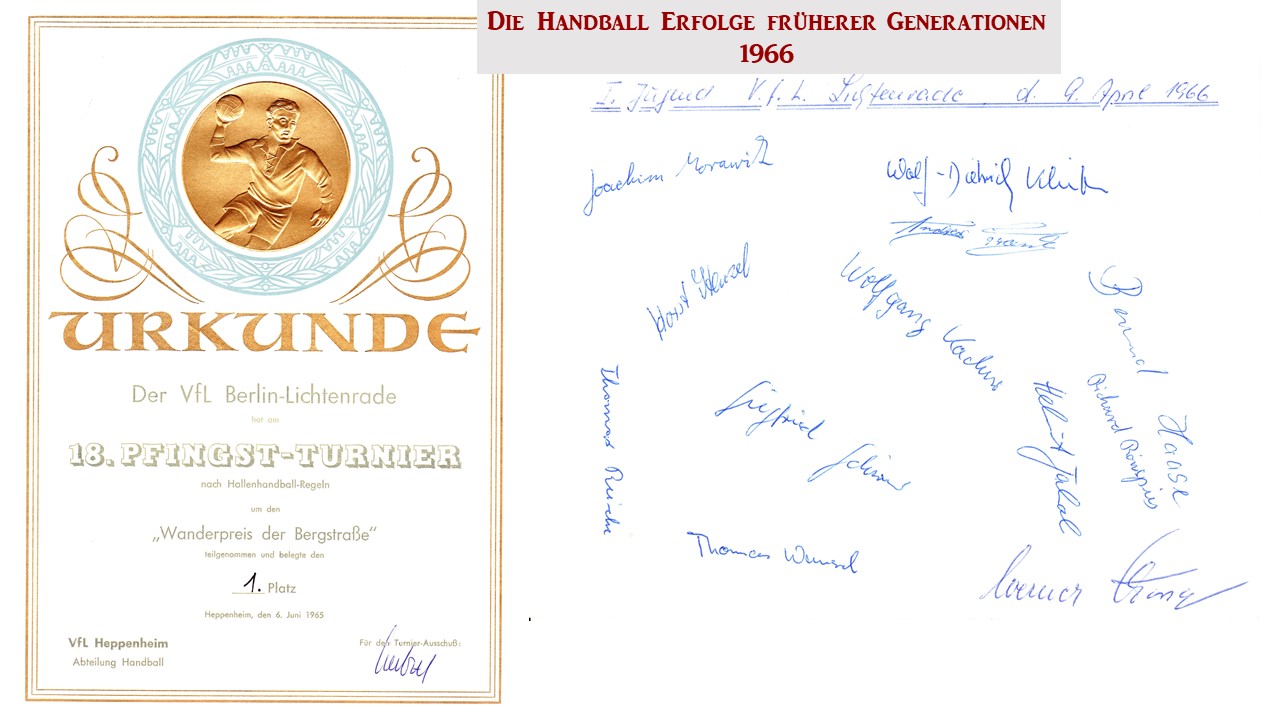 Die Handball Erfolge früherer Generationen
1966
URKUNDE
Der VfL Berlin-Lichtenrade
hat am
18. PFINGST-TURNIER
nach Hallenhandball-Regeln
um den
„Wanderpreis der Bergstraße“
teilgenommen und belegte den
1. Platz
Heppenheim, den 6. Juni 1965
VfL Heppenheim
Abteilung Handball
Für den Turnier-Ausschuß:
I. Jugend V.f.L. Lichtenrade d. 9. April 1966
Joachim Morawitz
Wolf-Dietrich
Horst Henzel
Wolfgang
Bernd Haase
Thomas
Siegfried
Richard
Thomas
Werner